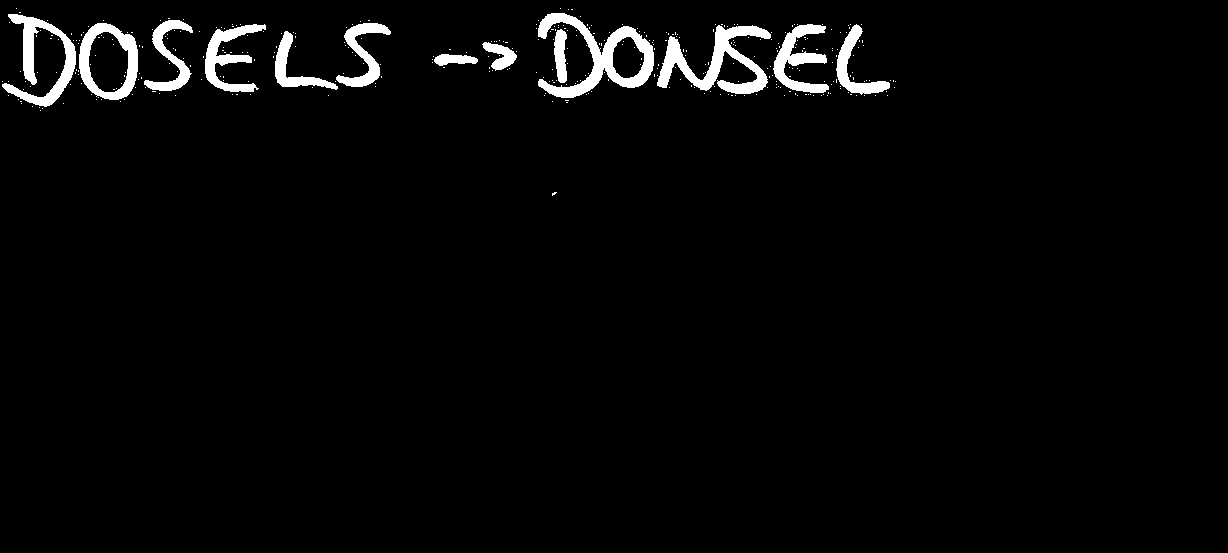 DOSELS -> DONSEL